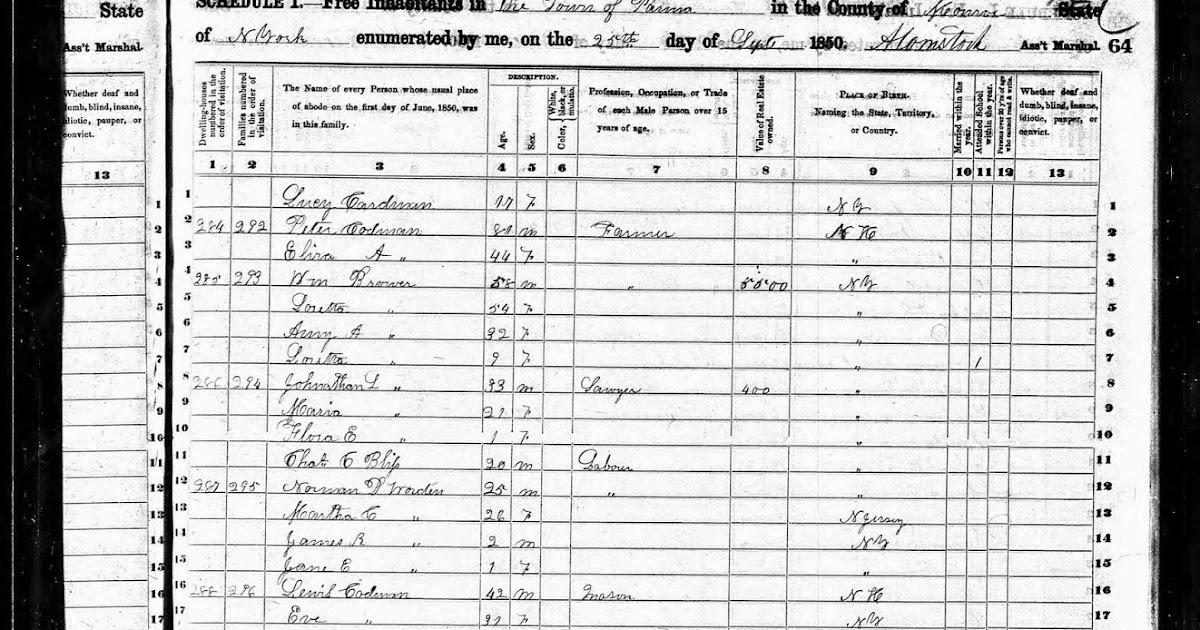 State
SCHEDULE I.—Free Inhabitants in the Town of Parma in the County of Monroe State
of N York enumerated by me, on the 25th day of Sept 1850. Ass't Marshal. 64
Ass't Marshal.
Whether deaf and dumb, blind, insane, idiotic, pauper, or convict.
13
Dwelling-houses numbered in the order of visitation.
Families numbered in the order of visitation.
The Name of every Person whose usual place of abode on the first day of June, 1850, was in this family.
DESCRIPTION.
Age.
Sex.
Color, White, black, or mulatto.
Profession, Occupation, or Trade of each Male Person over 15 years of age.
Value of Real Estate owned.
PLACE OF BIRTH. Naming the State, Territory, or Country.
Married within the year.
Attended School within the year.
Persons over 20 y'rs of age who cannot read & write.
Whether deaf and dumb, blind, insane, idiotic, pauper, or convict.
1 2 3 4 5 6 7 8 9 10 11 12 13
1 1 Lucy Cardman 17 F N Y 1
2 2 284 292 Peter Codman 81 m Farmer N H 2
3 3 Eliza A " 44 F " 3
4 4 285 293 Wm Brower 58 m " 5500 N Y 4
5 5 Loretta " 54 F " 5
6 6 Amy A " 32 F " 6
7 7 Loretta " 9 F " 1 7
8 8 286 294 Johnathan L " 33 m Sawyer 400 " 8
9 9 Maria " 21 F " 9
10 10 Flora E " 1 F " 10
11 11 Chat C Bliss 20 m Labour " 11
12 12 287 295 Norman D Worden 25 m " " 12
13 13 Martha C " 26 F N Jersey 13
14 14 James R " 2 m N Y 14
15 15 Jane E " 1 F " 15
16 16 288 296 Lewis Codman 42 m Mason N H 16
17 17 Eve " F N Y 17